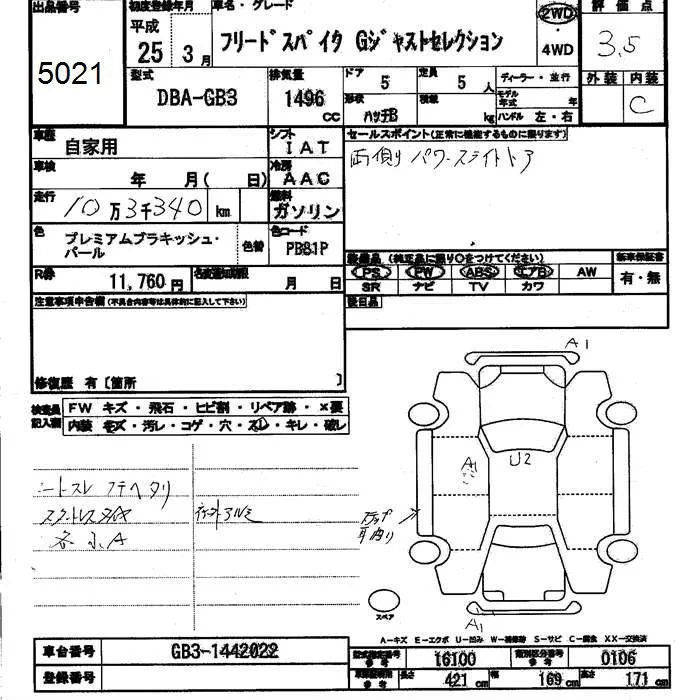 出品番号
5021
初度登録年月
平成
25 3月
車名・グレード
フリードスパイク Gジャストセレクション
2WD
・
4WD
評価点
3.5
外装 内装
C
型式
DBA-GB3
排気量
1496
CC
ドア
5
定員
5 人
形状
ハッチB
積載
kg
ディーラー・並行
モデル年式 年
ハンドル 左・右
車歴
自家用
シフト
IAT
車検
年 月( 日)
冷房
AAC
走行
10万3千340 km
燃料
ガソリン
色
プレミアムブラキッシュ・
パール
色替
色コード
PB81P
R券
11,760円
名変期限
月 日
セールスポイント(正常に機能するものに限ります)
両側パワースライドドア
装備品(純正品に限り○をつけてください)
PS PW ABS エアB AW
SR ナビ TV カワ
新車保証書
有・無
後日品
注意事項申告欄(不具合内容等は具体的に記入して下さい)
修復歴 有〔箇所 〕
検査員
記入欄
FW キズ・飛石・ヒビ割・リペア跡・×要
内装 キズ・汚レ・コゲ・穴・スレ・キレ・破レ
シートスレ フチヘタリ
スタートレスタイヤ
各小A
社外アルミ
A1
A1
U2
ステップ
A1
スペア
A-キズ E-エクボ U-凹み W-補修跡 S-サビ C-腐食 XX-交換済
車台番号
GB3-1442022
登録番号
型式指定番号
参考
16100
類別区分番号
参考
0106
車両寸法
参考
長さ 421 cm
幅 169 cm
高さ 171 cm